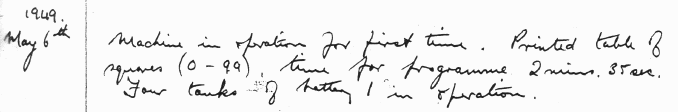 1949.
May 6th
Machine in operation for first time. Printed table of
squares (0 - 99), time for programme 2 mins. 35 sec.
Four tanks of battery 1 in operation.